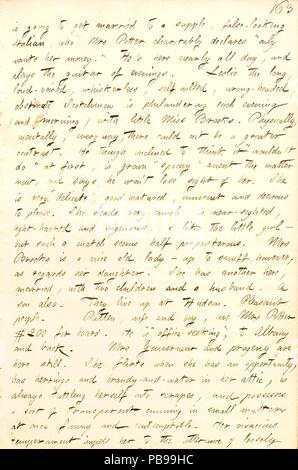 163
is going to get married to a supple, false-looking
Italian, who Mrs Potter charitably declares "only
wants her money." He's here nearly all day, and
plays the guitar of evenings. Leslie the long,
loud-voiced, whiskerless, self willed, wrong-headed
obstinate Scotchman is philandering each evening
(and morning) with little Miss Brooks. Physically,
mentally, every way there could not be a greater
contrast. He though inclined to think it "wouldn't
do" at first, is grown "spooney" anent the matter
now, and says he won't lose sight of her. She
is very delicate, good natured, innocent and desirous
to please. She reads very much, is near-sighted,
light-haired and ingenuous. I like the little girl—
but such a match seems half preposterous. Mrs
Brooks is a nice old lady — up to snuff, however,
as regards her daughter. She has another here,
married, with two children and a husband. A
son also. They live up at Hudson. Pleasant
people. Patten, wife and boy, owe Mrs Potter
$200 for board. He is "office seeking," to Albany
and back. Mrs Gouverneur and progeny are
here still. She flirts when she has an opportunity,
has herrings and brandy-and-water in her attic, is
always tattling herself into scrapes, and possesses
a sort of transparent cunning in small matters
at once funny and contemptible. Her vivacious
temperament impels her to the utterance of loosely
alamy
PB99HC